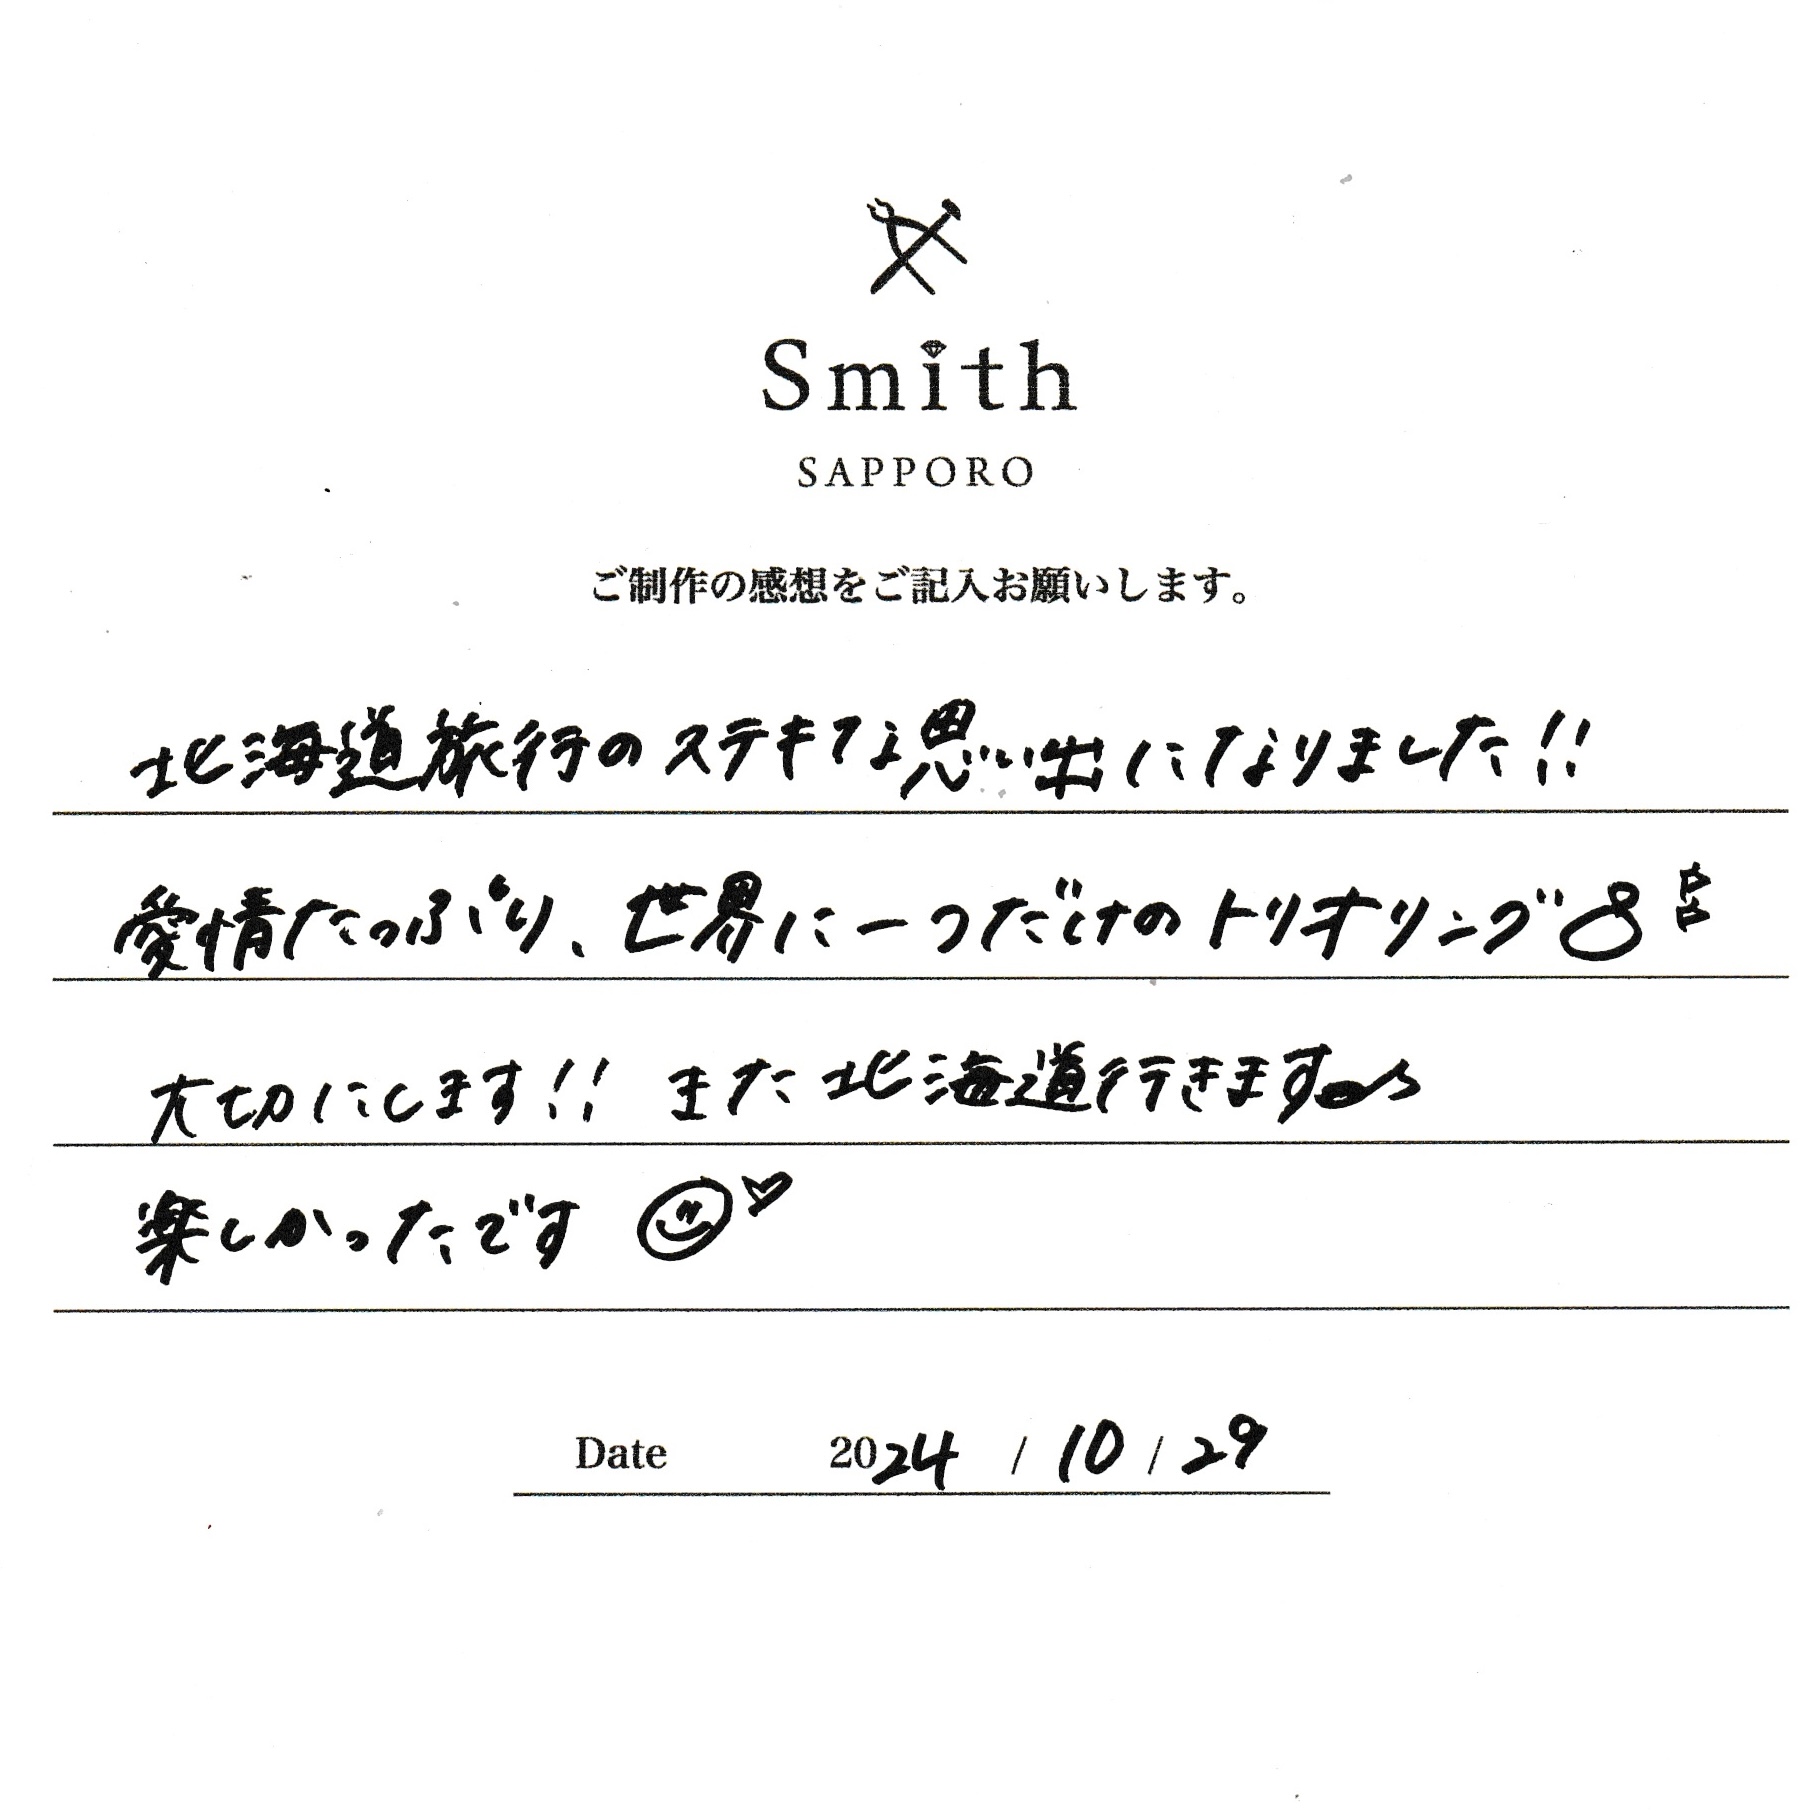 Smith
SAPPORO
ご制作の感想をご記入お願いします。
北海道旅行のステキな思い出になりました!!
愛情たっぷり、世界に一つだけのトリオリング
大切にします!! また北海道行きます
楽しかったです
Date 2024 / 10 / 29